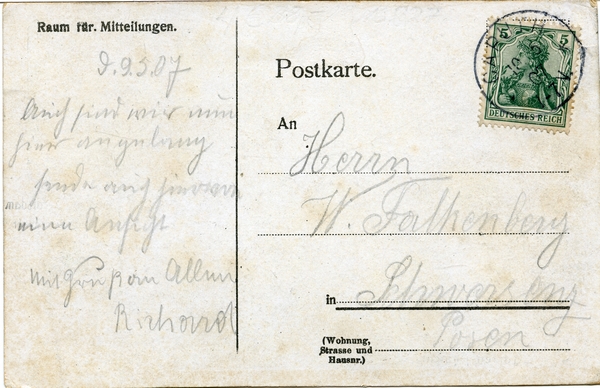 Raum für Mitteilungen.
d. 9.3.07
Auch sind wir nun
hier angelang
sende auch hiervon
eine Ansicht
Mit Gruß an Allen
Richard
Postkarte.
An
Herrn
W. Falkenberg
in Schwersenz
Posen
(Wohnung,
Strasse und
Hausnr.)
5 5
DEUTSCHES REICH